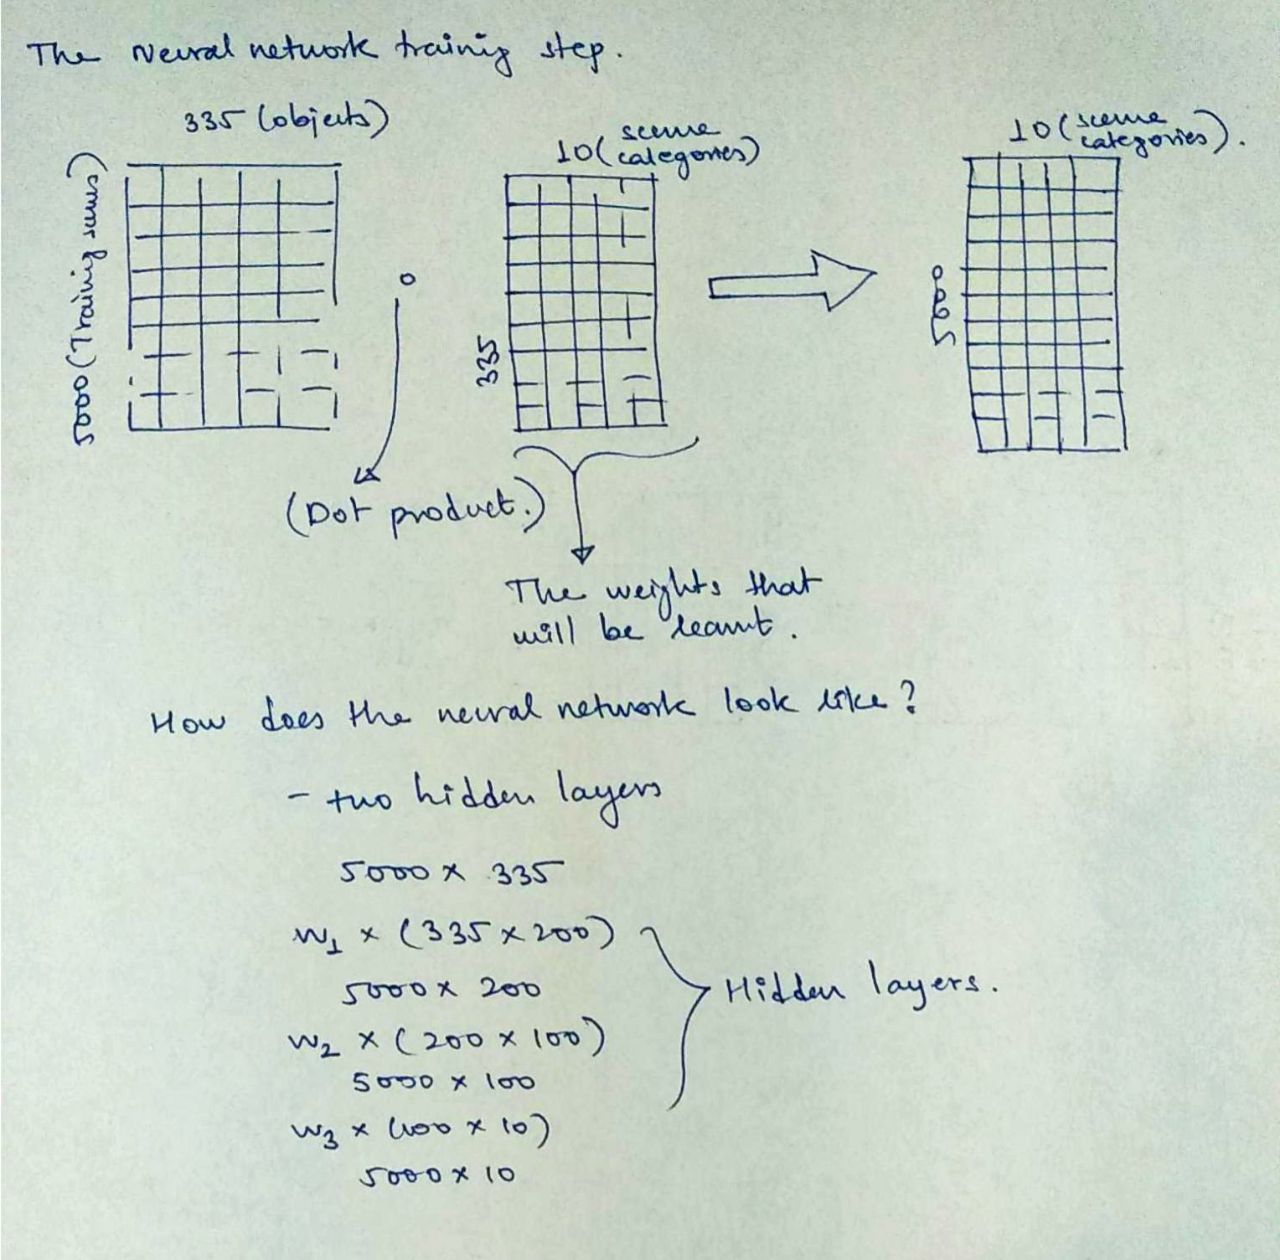 The Neural network training step.
335 (objects)
5000 (Training scenes)
10 (scene
categories)
335
10 (scene
categories).
5000
(Dot product.)
The weights that
will be learnt.
How does the neural network look like?
- two hidden layers
5000 x 335
W1 x (335 x 200)
5000 x 200
Hidden layers.
W2 x (200 x 100)
5000 x 100
W3 x (100 x 10)
5000 x 10